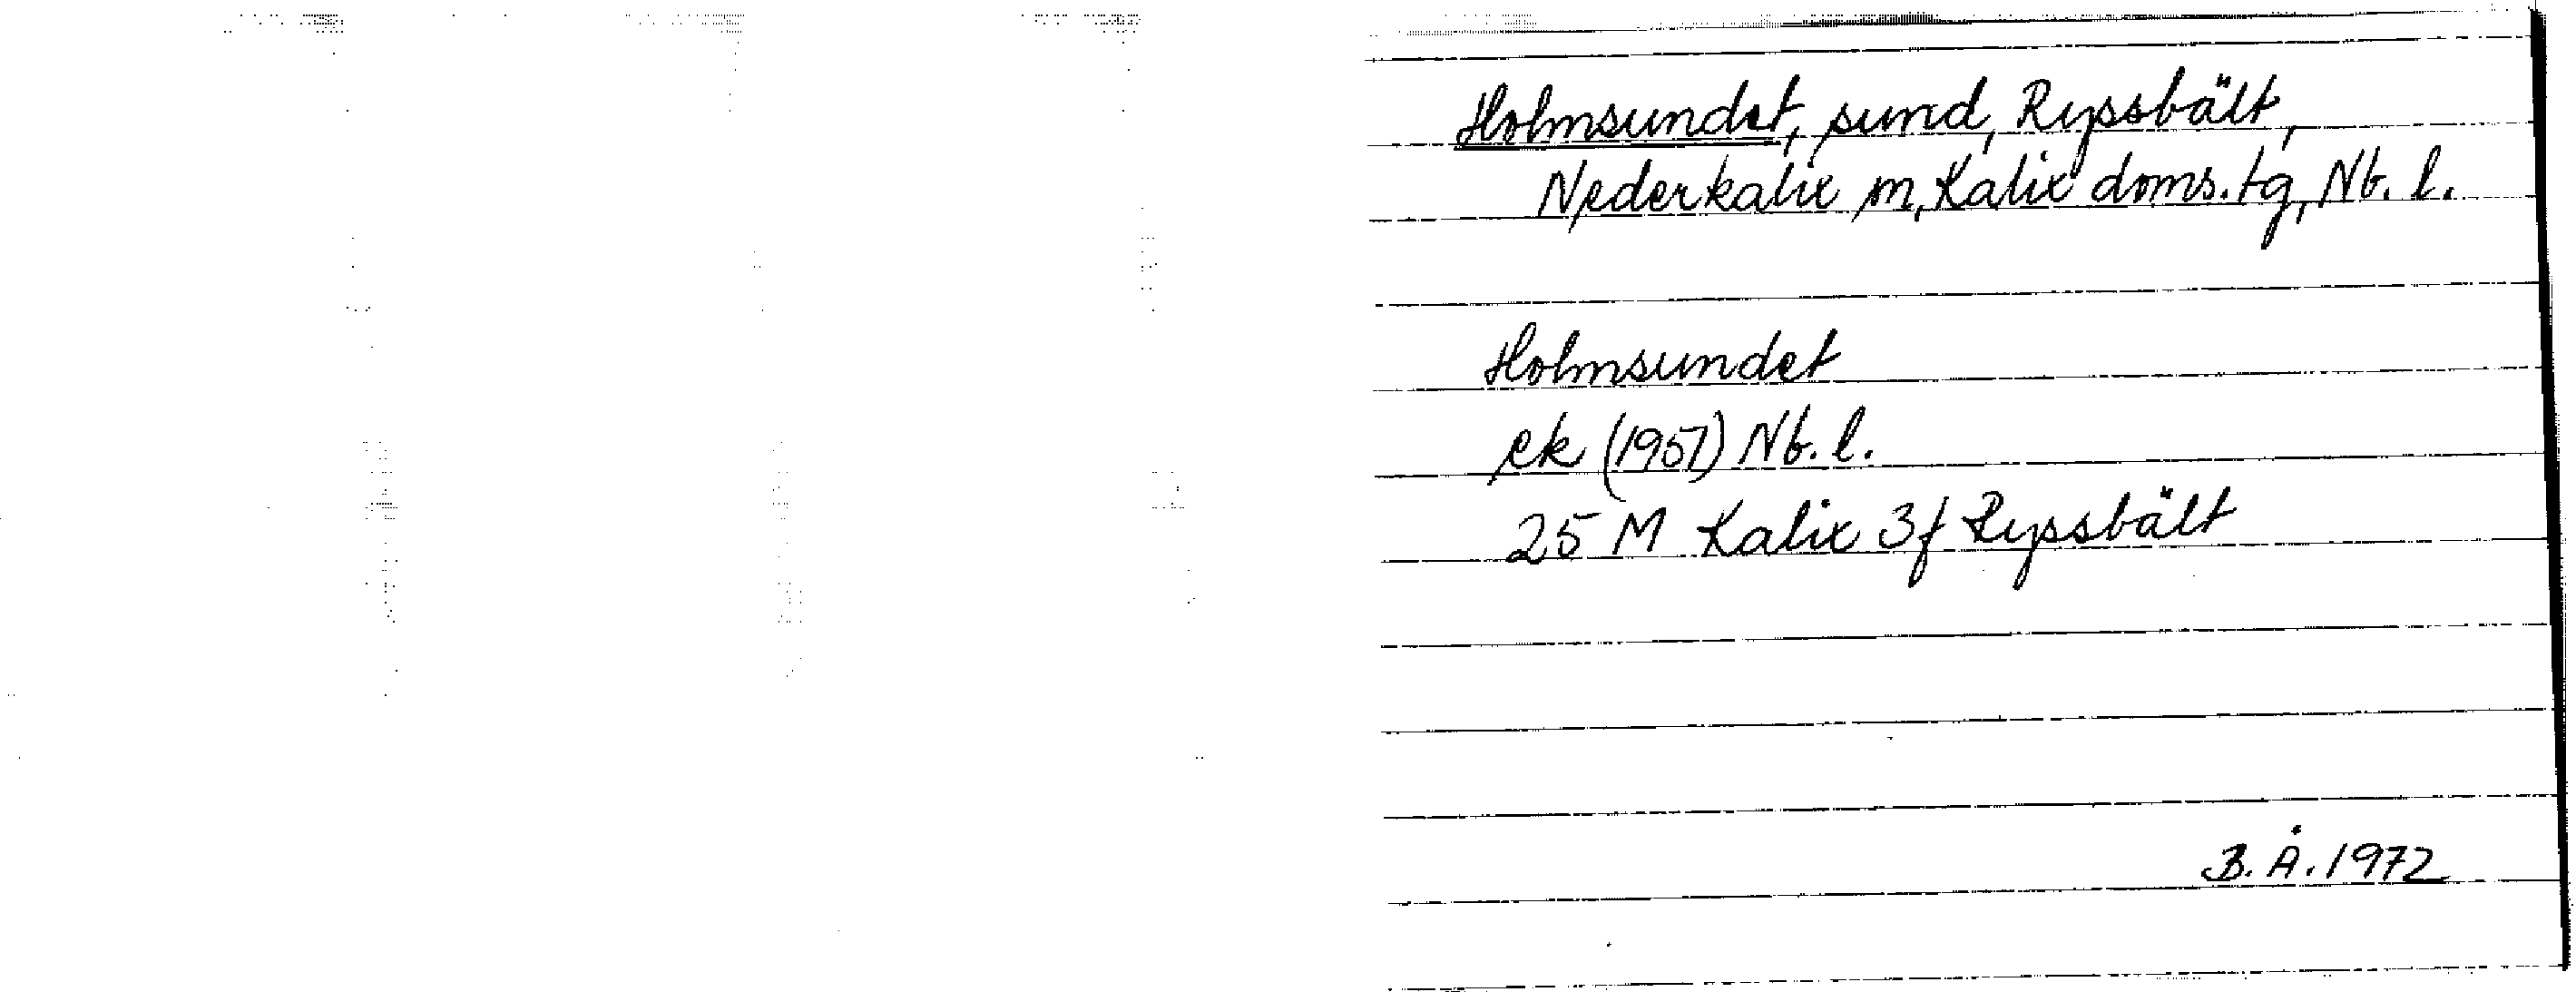 Holmsundet, sund, Ryssbält,
Nederkalix sn, Kalix doms.tg, Nb. l.
Holmsundet
ek (1957) Nb. l.
25 M Kalix 3f Ryssbält
B. Å. 1972